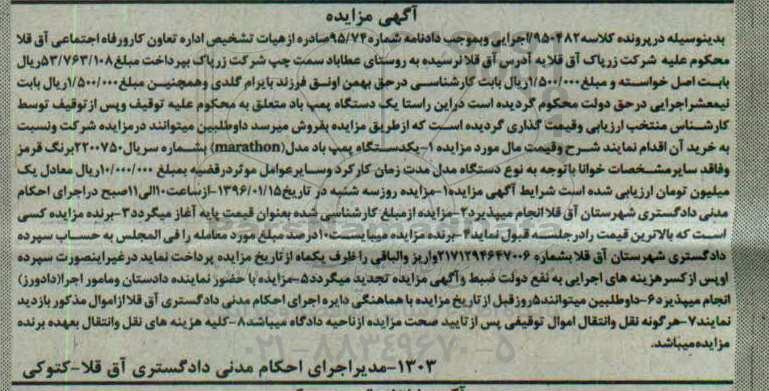 آگهی مزایده
بدینوسیله درپرونده کلاسه ۹۵۰۴۸۲/اجرایی وبموجب دادنامه شماره ۹۵/۷۴صادره ازهیات تشخیص اداره تعاون کارورفاه اجتماعی آق قلا
محکوم علیه شرکت زرپاک آق قلابه آدرس آق قلانرسیده به روستای عطاباد سمت چپ شرکت زرپاک بپرداخت مبلغ ۵۳/۷۶۳/۱۰۸ریال
بابت اصل خواسته و مبلغ ۱/۵۰۰/۰۰۰ریال بابت کارشناسی درحق بهمن اونق فرزند بایرام گلدی وهمچنین مبلغ ۱/۵۰۰/۰۰۰ریال بابت
نیمعشراجرایی درحق دولت محکوم گردیده است دراین راستا یک دستگاه پمپ باد متعلق به محکوم علیه توقیف وپس ازتوقیف توسط
کارشناس منتخب ارزیابی وقیمت گذاری گردیده است که ازطریق مزایده بفروش میرسد داوطلبین میتوانند درمزایده شرکت ونسبت
به خرید آن اقدام نمایند شرح وقیمت مال مورد مزایده ۱-یکدستگاه پمپ باد مدل(marathon) بشماره سریال۲۲۰۰۷۵۰برنگ قرمز
وفاقد سایرمشخصات خوانا باتوجه به نوع دستگاه مدل مدت زمان کارکرد وسایرعوامل موثردرقضیه بمبلغ ۱۰/۰۰۰/۰۰۰ریال معادل یک
میلیون تومان ارزیابی شده است شرایط آگهی مزایده۱-مزایده روزسه شنبه در تاریخ۱۳۹۶/۰۱/۱۵-ازساعت۱۰الی۱۱صبح دراجرای احکام
مدنی دادگستری شهرستان آق قلاانجام میپذیرد۲-مزایده ازمبلغ کارشناسی شده بعنوان قیمت پایه آغاز میگردد۳-برنده مزایده کسی
است که بالاترین قیمت رادرجلسه قبول نماید۴-برنده مزایده میبایست۱۰درصد مبلغ مورد معامله را فی المجلس به حساب سپرده
دادگستری شهرستان آق قلا بشماره ۲۱۷۱۲۹۴۶۴۷۰۰۶واریز والباقی راظرف یکماه ازتاریخ مزایده پرداخت نماید درغیراینصورت سپرده
اوپس ازکسرهزینه های اجرایی به نفع دولت ضبط وآگهی مزایده تجدید میگردد۵-مزایده با حضور نماینده دادستان ومامور اجرا(دادورز)
انجام میپذیرد۶-داوطلبین میتوانند۵روزقبل ازتاریخ مزایده با هماهنگی دایره اجرای احکام مدنی دادگستری آق قلاازاموال مذکور بازدید
نمایند۷-هرگونه نقل وانتقال اموال توقیفی پس ازتایید صحت مزایده ازناحیه دادگاه میباشد۸-کلیه هزینه های نقل وانتقال بعهده برنده
مزایده‌میباشد.
۱۳۰۳-مدیراجرای احکام مدنی دادگستری آق قلا-کتوکی
۰۲۱-۸۸۳۴۹۶۷۰-۵